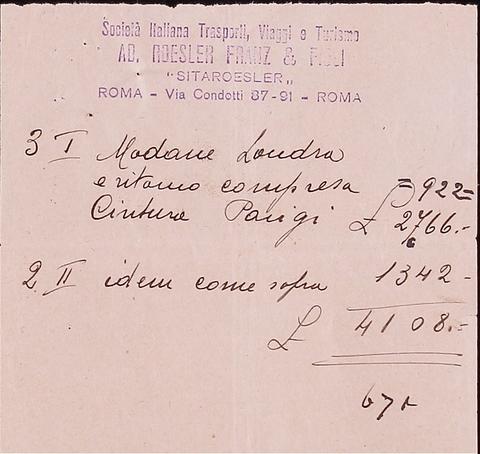 Società Italiana Trasporti, Viaggi e Turismo
AD. ROESLER FRANZ & FIGLI
"SITAROESLER"
ROMA - Via Condotti 87-91 - ROMA
3 I Modane Londra
e ritorno compresa 922=
Cintura Parigi £ 2766.-
2 II idem come sopra 1342-
£ 4108.-